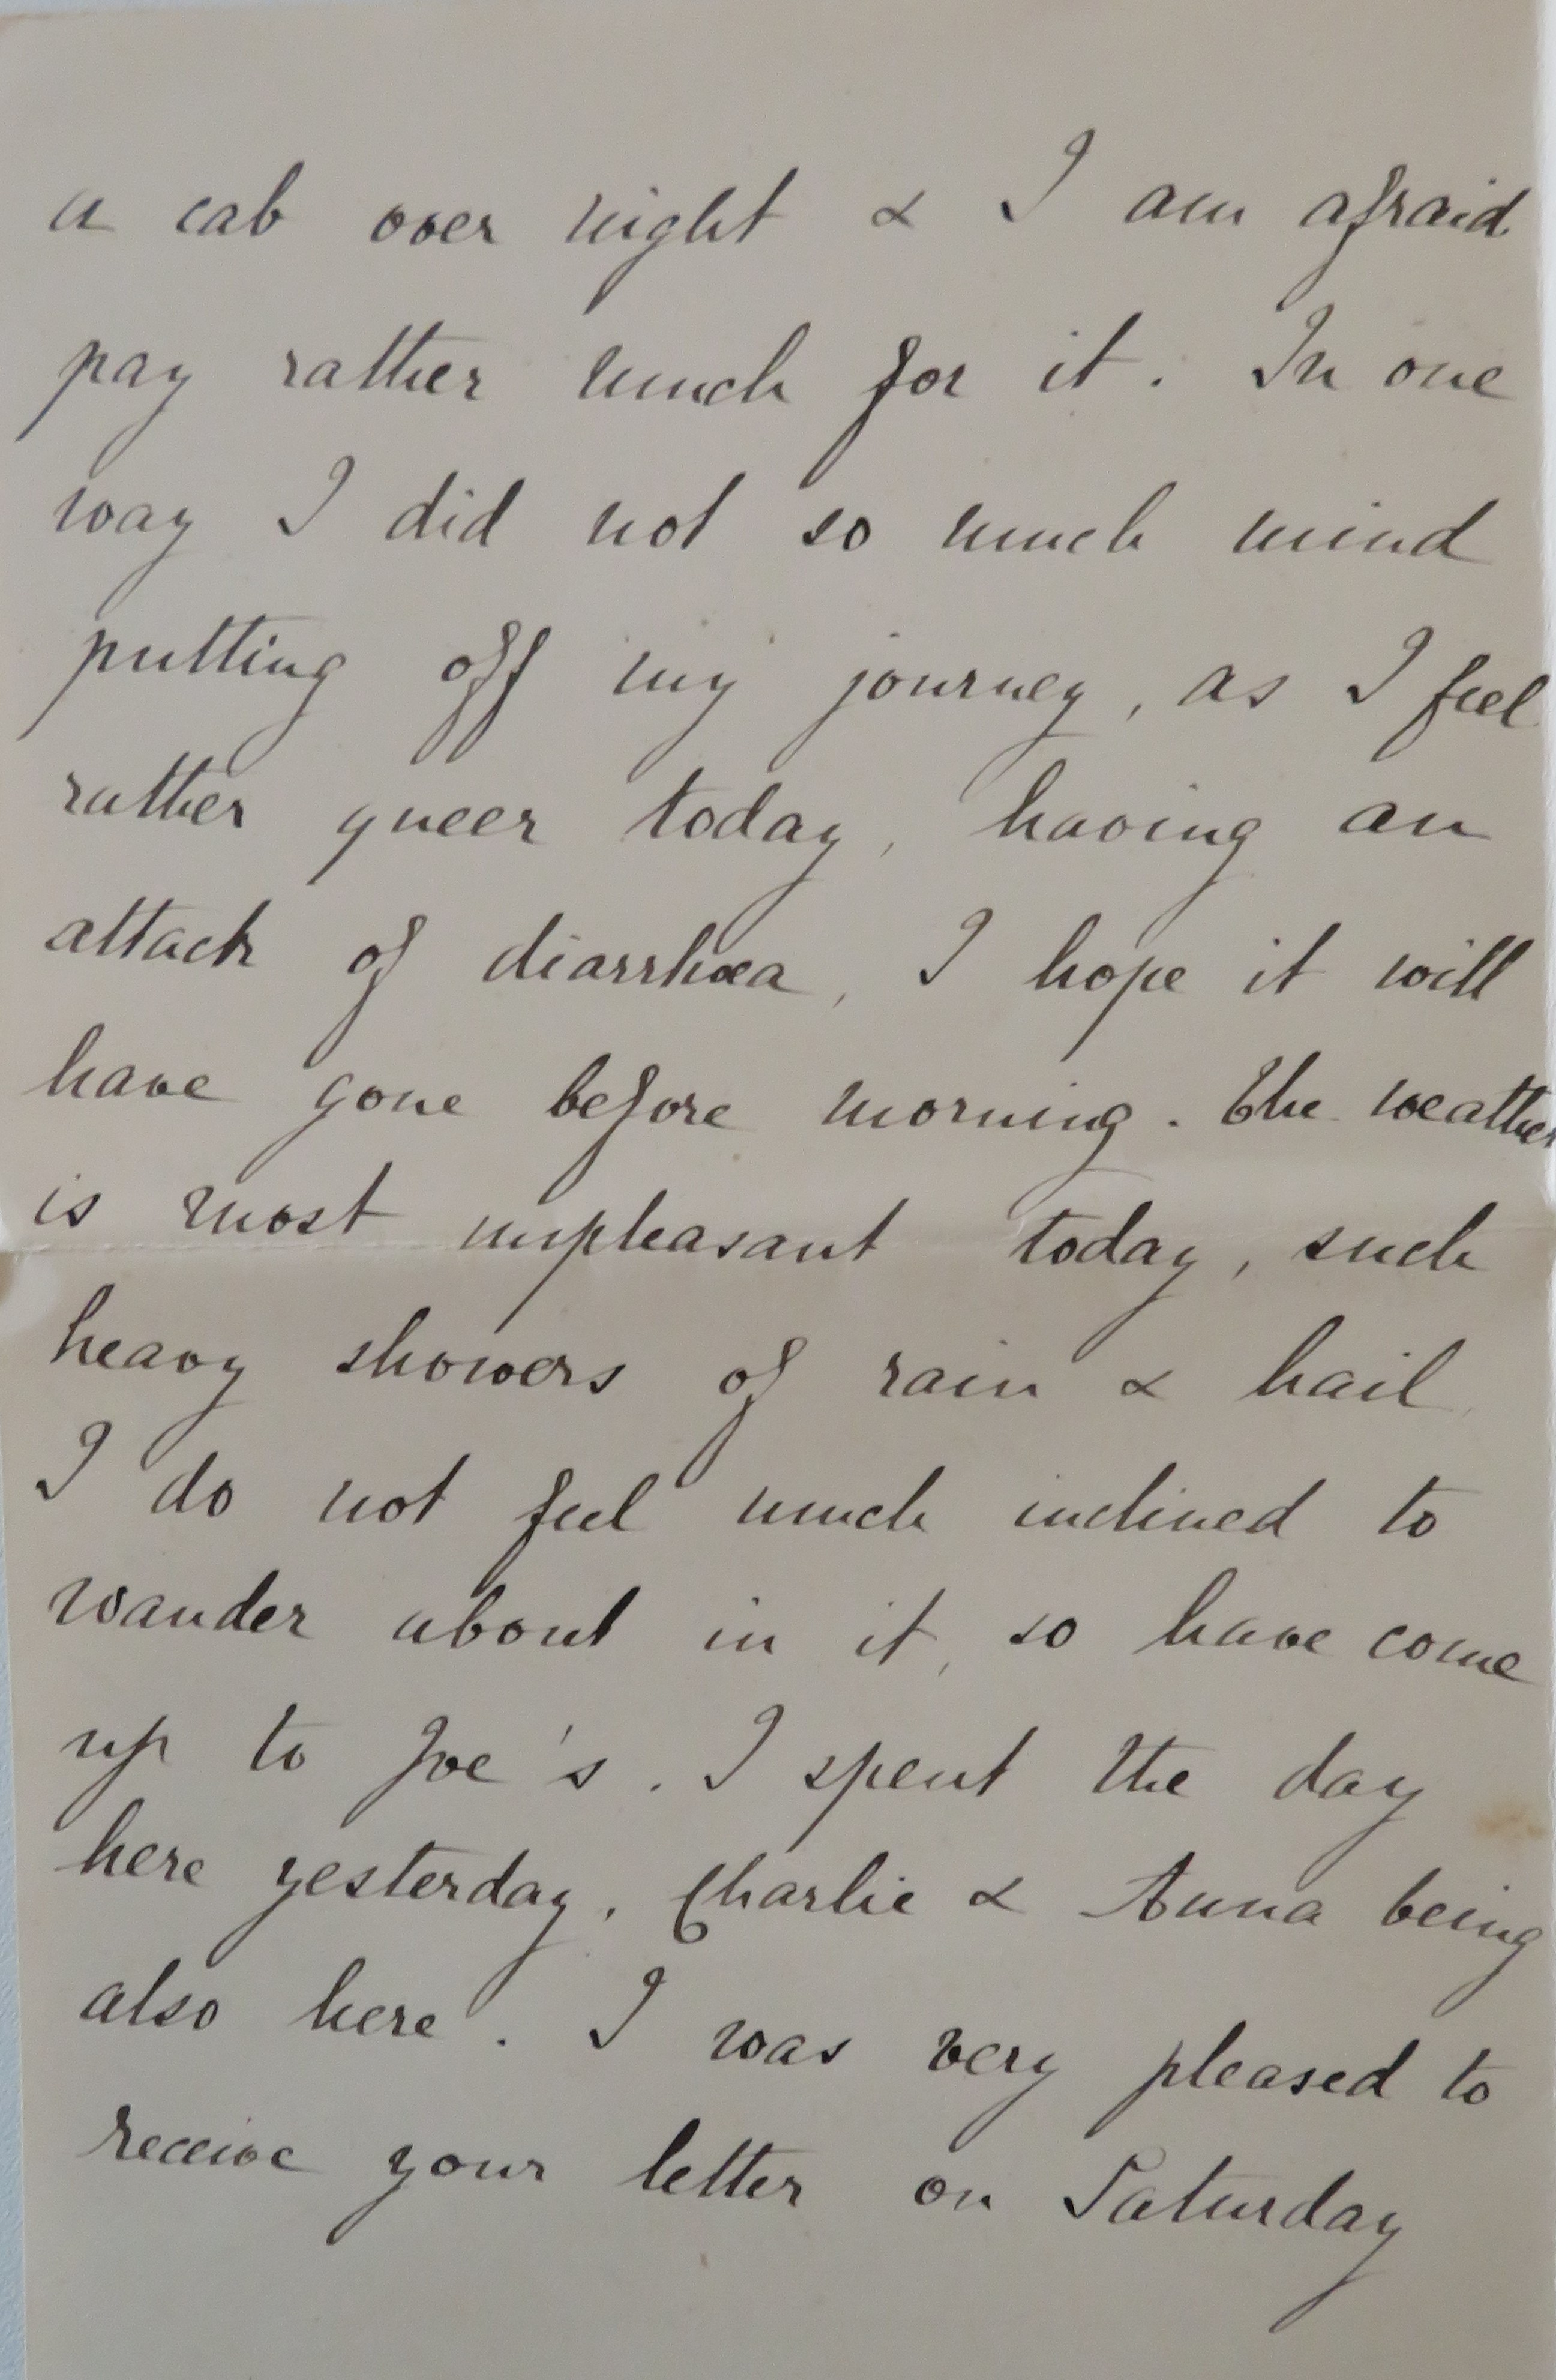 a cab over night & I am afraid
pay rather much for it. In one
way I did not so much mind
putting off my journey, as I feel
rather queer today, having an
attack of diarrhœa, I hope it will
have gone before morning. The weather
is most unpleasant today, such
heavy showers of rain & hail,
I do not feel much inclined to
wander about in it, so have come
up to Joe's. I spent the day
here yesterday, Charlie & Anna being
also here. I was very pleased to
receive your letter on Saturday